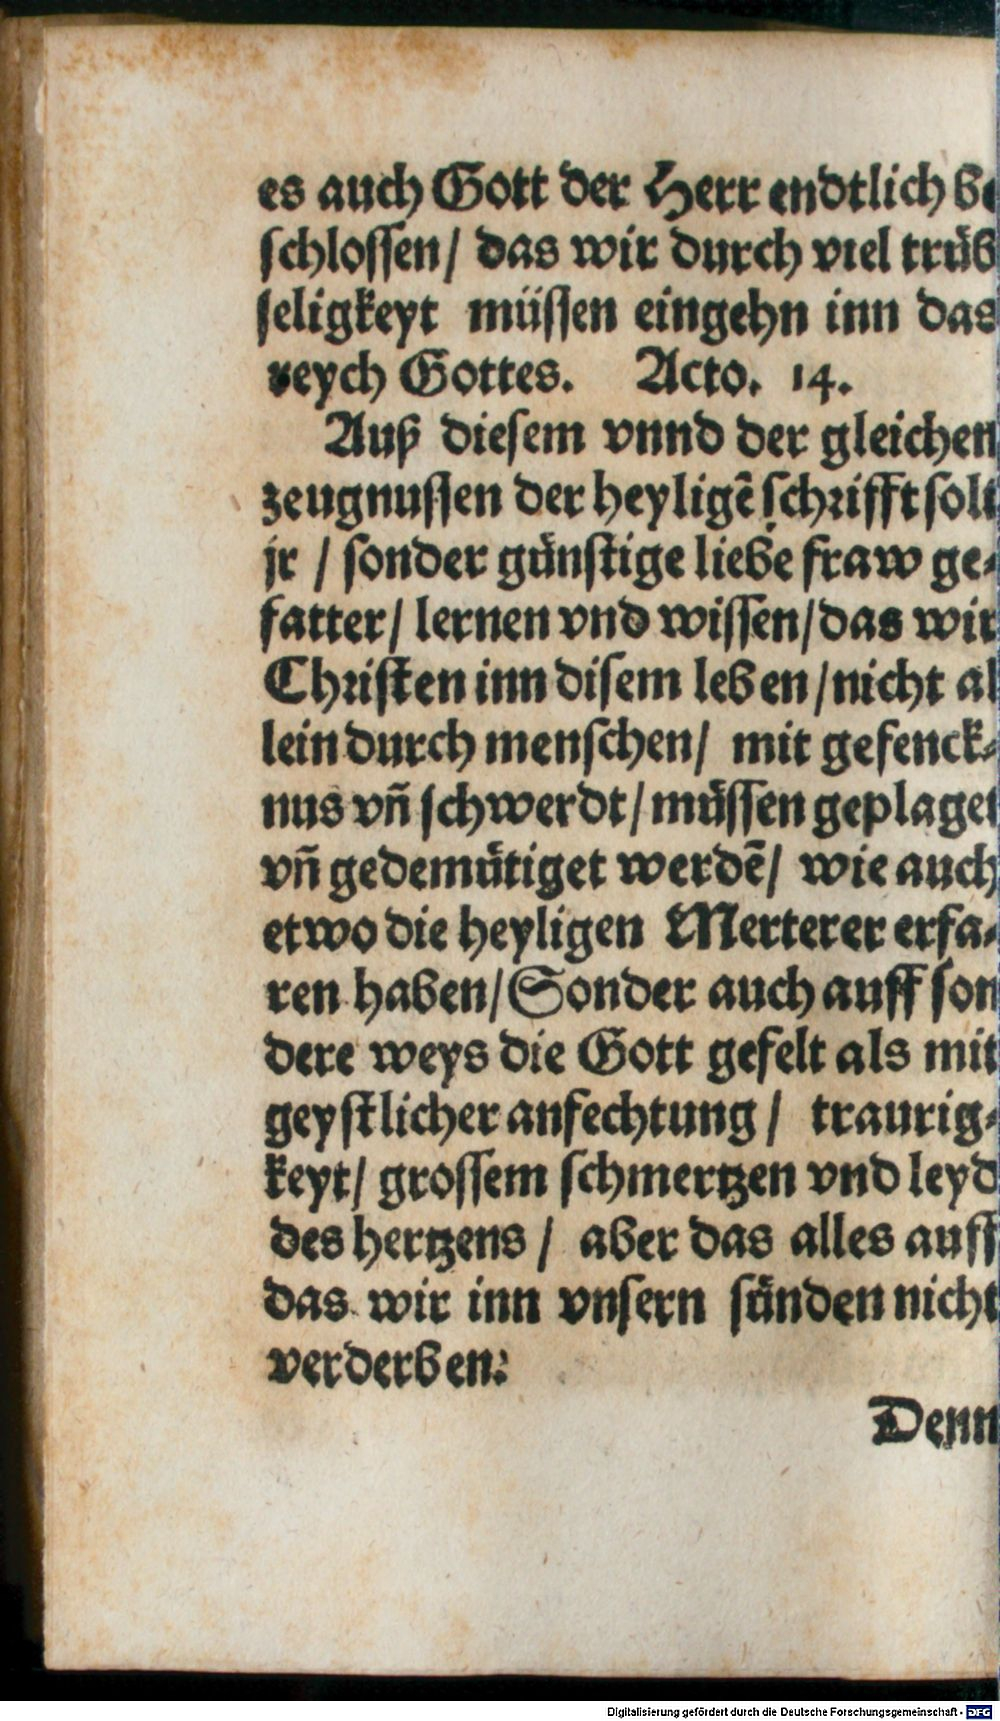 es auch Gott der Herr endtlich be
schlossen/ das wir durch viel trüb
seligkeyt müssen eingehn inn das
reych Gottes. Acto. 14.
Auß diesem vnnd der gleichen
zeugnussen der heyligē schrifft solt
jr / sonder günstige liebe fraw ge-
fatter/ lernen vnd wissen/das wir
Christen inn disem leben/nicht al
lein durch menschen/ mit gefenck-
nus vñ schwerdt/ müssen geplaget
vñ gedemütiget werdē/ wie auch
etwo die heyligen Merterer erfa-
ren haben/ Sonder auch auff son
dere weys die Gott gefelt als mit
geystlicher anfechtung/ traurig-
keyt/ grossem schmertzen vnd leyd
des hertzens / aber das alles auff
das wir inn vnsern sünden nicht
verderben:
Denn
Digitalisierung gefördert durch die Deutsche Forschungsgemeinschaft - DFG